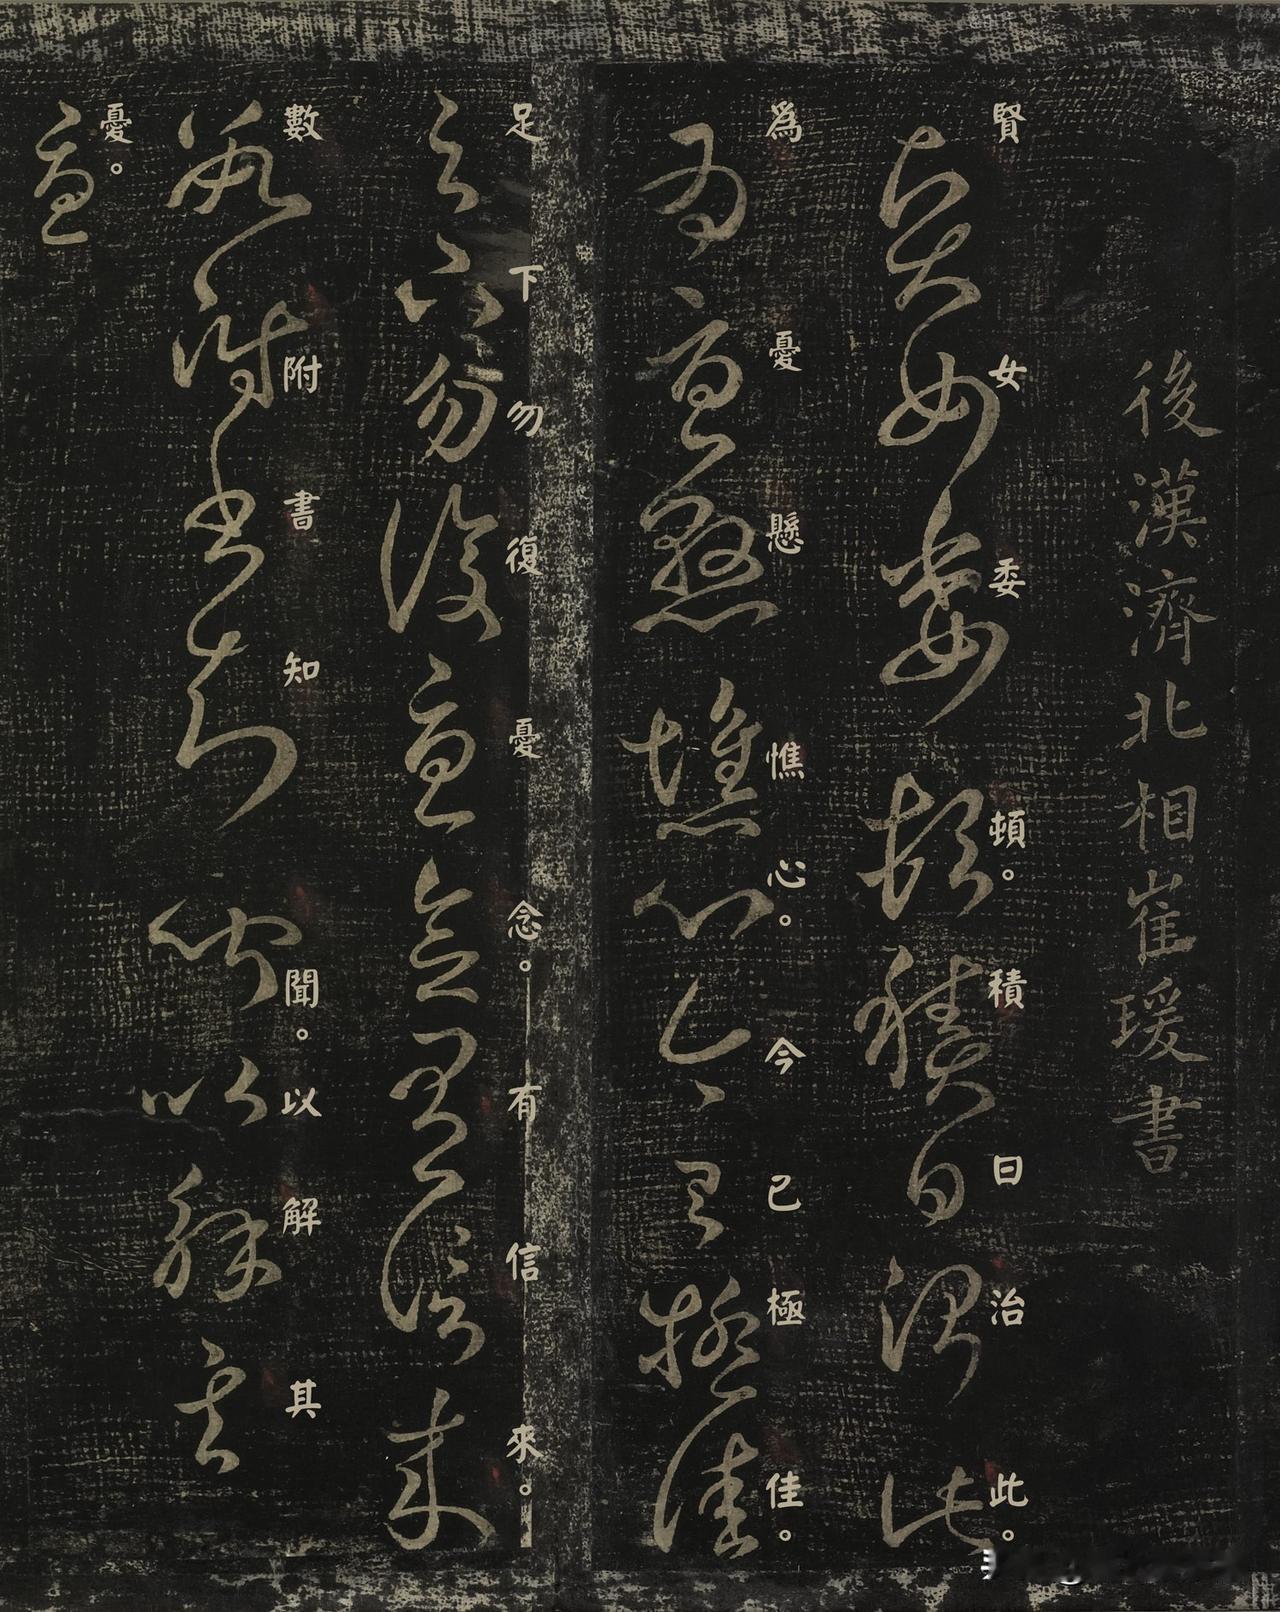 後漢濟北相崔瑗書
賢女委頓。積日治此。
爲憂懸憔心。今已極佳。
足下勿復憂念。有信來。
數附書知聞。以解其
憂。